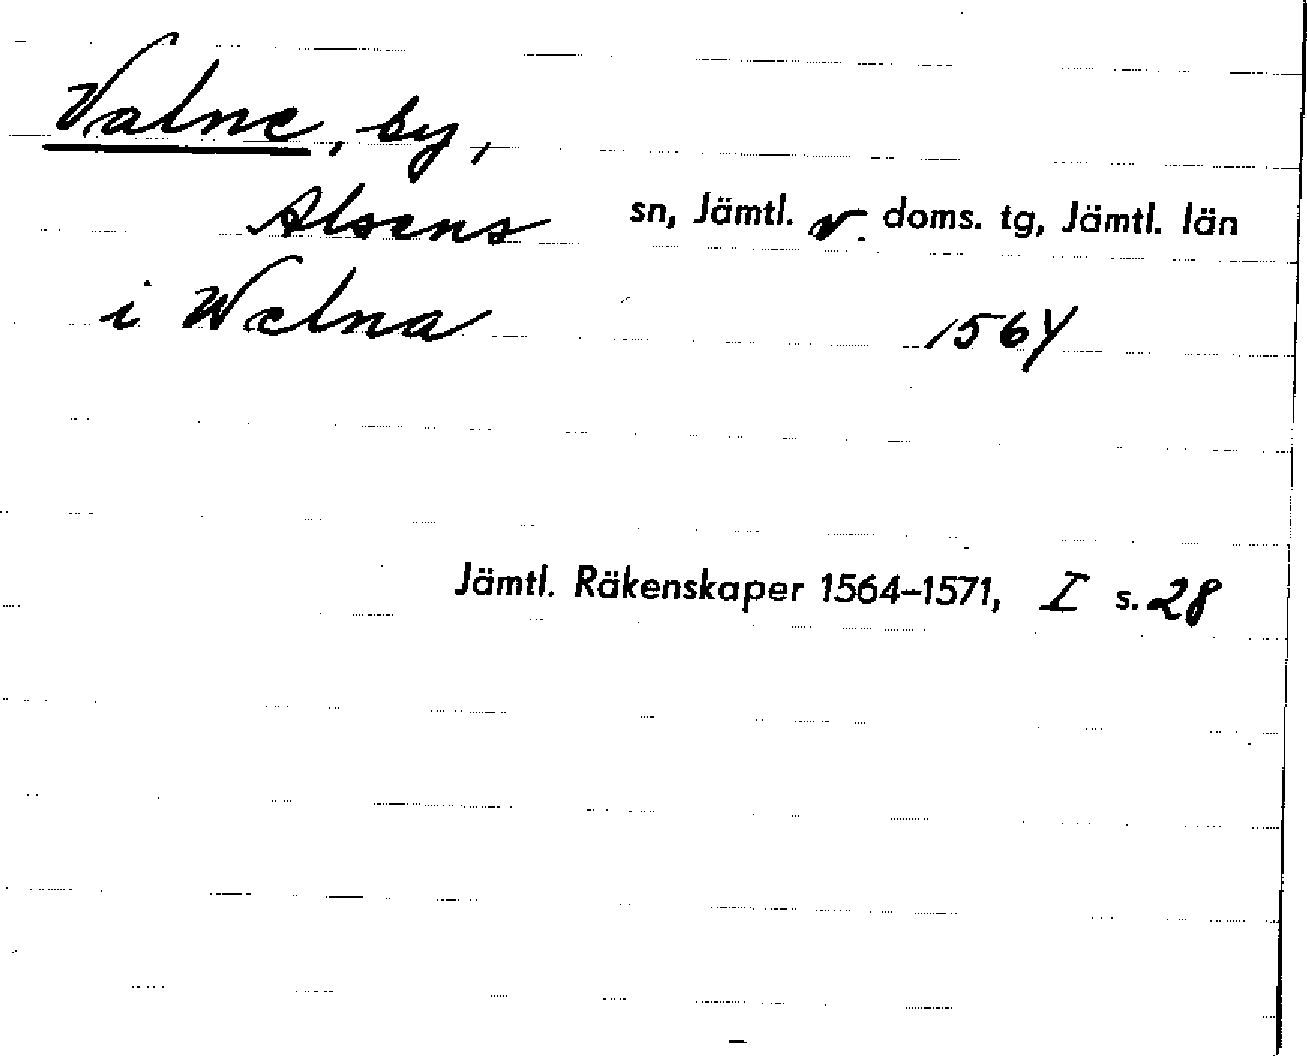 Valne, by,
Alsens sn, Jämtl. v. doms. tg, Jämtl. län
i Welna 1564
Jämtl. Räkenskaper 1564–1571, I s. 28